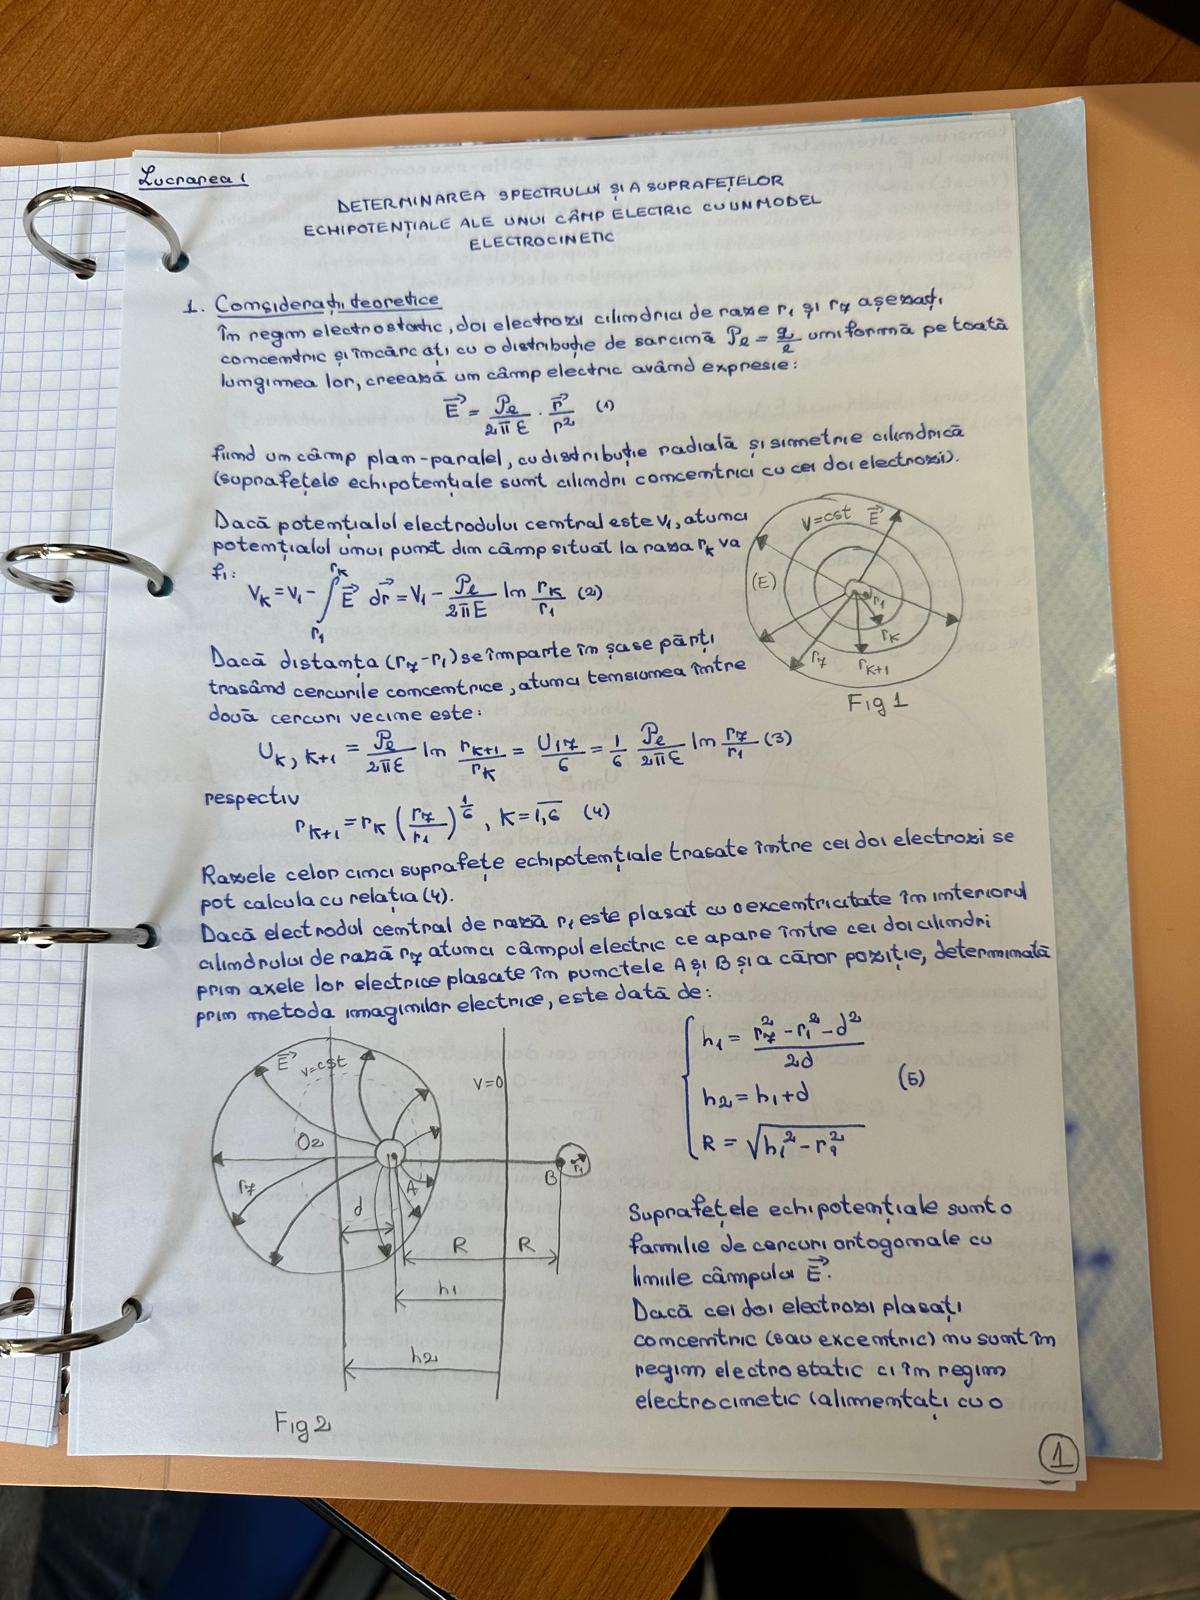 Lucrarea 1
DETERMINAREA SPECTRULUI ȘI A SUPRAFEȚELOR
ECHIPOTENȚIALE ALE UNUI CÂMP ELECTRIC CU UN MODEL
ELECTROCINETIC
1. Considerații teoretice
În regim electrostatic, doi electrozi cilindrici de raze r₁ și r₇ așezați
concentric și încărcați cu o distribuție de sarcină ρₑ = q/ℓ uniformă pe toată
lungimea lor, creează un câmp electric având expresie:
E⃗ = ρₑ/2πε · r⃗/r² (1)
fiind un câmp plan-paralel, cu distribuție radială și simetrie cilindrică
(suprafețele echipotențiale sunt cilindri concentrici cu cei doi electrozi).
Dacă potențialul electrodului central este V₁, atunci
potențialul unui punct din câmp situat la raza rₖ va
fi:
Vₖ = V₁ - ∫_{r₁}^{rₖ} E⃗ dr⃗ = V₁ - ρₑ/2πε ln rₖ/r₁ (2)
V=cst E⃗
(E)
r₁
rₖ
r₇
rₖ₊₁
Fig 1
Dacă distanța (r₇-r₁) se împarte în șase părți
trasând cercurile concentrice, atunci tensiunea între
două cercuri vecine este:
Uₖ, ₖ₊₁ = ρₑ/2πε ln rₖ₊₁/rₖ = U₁₇/6 = 1/6 ρₑ/2πε ln r₇/r₁ (3)
respectiv
rₖ₊₁ = rₖ (r₇/r₁)^{1/6}, K = 1,6 (4)
Razele celor cinci suprafețe echipotențiale trasate între cei doi electrozi se
pot calcula cu relația (4).
Dacă electrodul central de rază r₁ este plasat cu o excentricitate în interiorul
cilindrului de rază r₇ atunci câmpul electric ce apare între cei doi cilindri
prin axele lor electrice plasate în punctele A și B și a căror poziție, determinată
prin metoda imaginilor electrice, este dată de:
h₁ = r₇² - r₁² - d²/2d
h₂ = h₁ + d
R = √h₁² - r₁²
(5)
E⃗ V=cst
V=0
O₂
r₇
A
B
r₁
d
R
R
h₁
h₂
Fig 2
Suprafețele echipotențiale sunt o
familie de cercuri ortogonale cu
liniile câmpului E⃗.
Dacă cei doi electrozi plasați
concentric (sau excentric) nu sunt în
regim electrostatic ci în regim
electrocinetic (alimentați cu o
1